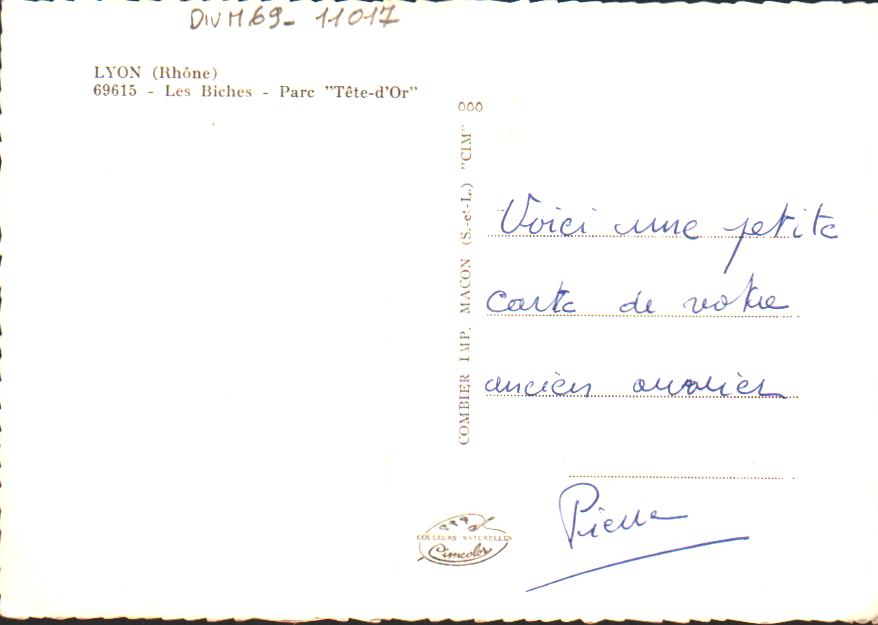 DIV M69- 11017
LYON (Rhône)
69615 - Les Biches - Parc "Tête-d'Or"
000
COMBIER IMP. MACON (S.-et-L.) "CIM"
Voici une petite
carte de votre
ancien
Pierre
COULEURS NATURELLES
Cimcolor